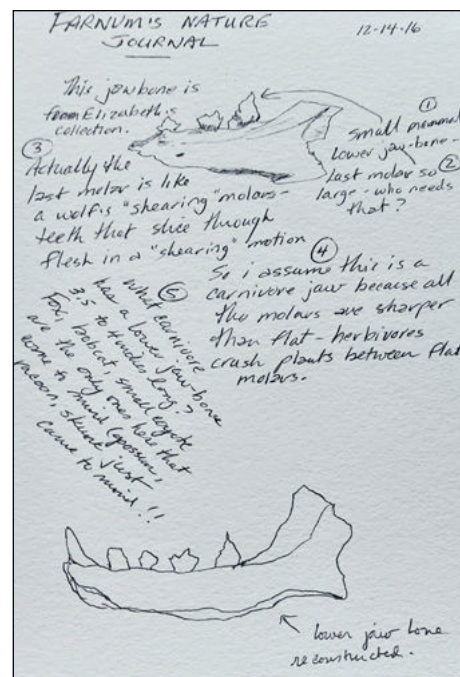 FARNUM'S NATURE
JOURNAL
12-14-16
This jawbone is
from Elizabeth's
collection.
①
small mammal
lower jaw-bone-
last molar so ②
large - who needs
that?
③
Actually the
last molar is like
a wolf's "shearing" molars-
teeth that slice through
flesh in a "shearing" motion
④
So i assume this is a
carnivore jaw because all
the molars are sharper
than flat - herbivores
crush plants between flat
molars.
⑤
what carnivore
has a lower jaw-bone
3.5 to 4 inches long?
Fox, bobcat, small coyote
are the only ones here that
come to mind (opossum,
racoon, skunk just
came to mind!!
lower jaw bone
reconstructed.